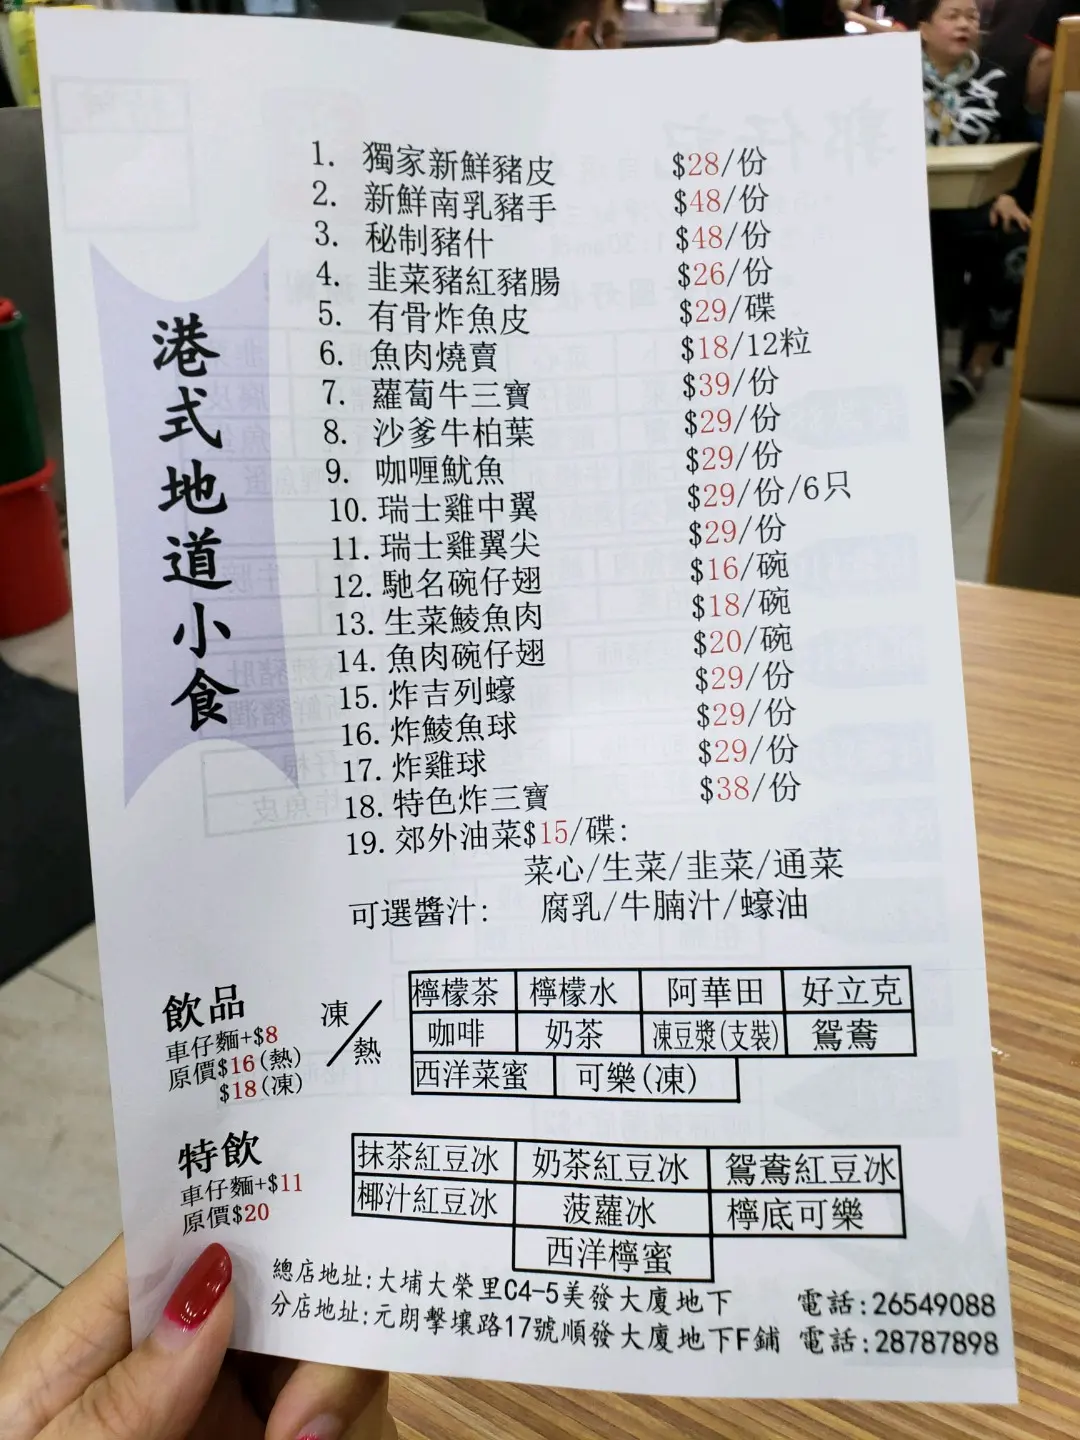 港式地道小食
1. 獨家新鮮豬皮 $28/份
2. 新鮮南乳豬手 $48/份
3. 秘制豬什 $48/份
4. 韭菜豬紅豬腸 $26/份
5. 有骨炸魚皮 $29/碟
6. 魚肉燒賣 $18/12粒
7. 蘿蔔牛三寶 $39/份
8. 沙爹牛柏葉 $29/份
9. 咖喱魷魚 $29/份
10. 瑞士雞中翼 $29/份/6只
11. 瑞士雞翼尖 $29/份
12. 馳名碗仔翅 $16/碗
13. 生菜鯪魚肉 $18/碗
14. 魚肉碗仔翅 $20/碗
15. 炸吉列蠔 $29/份
16. 炸鯪魚球 $29/份
17. 炸雞球 $29/份
18. 特色炸三寶 $38/份
19. 郊外油菜$15/碟:
菜心/生菜/韭菜/通菜
可選醬汁: 腐乳/牛腩汁/蠔油
飲品
車仔麵+$8
原價$16(熱)
$18(凍)
凍/熱
檸檬茶 檸檬水 阿華田 好立克
咖啡 奶茶 凍豆漿(支裝) 鴛鴦
西洋菜蜜 可樂(凍)
特飲
車仔麵+$11
原價$20
抹茶紅豆冰 奶茶紅豆冰 鴛鴦紅豆冰
椰汁紅豆冰 菠蘿冰 檸底可樂
西洋檸蜜
總店地址:大埔大榮里C4-5美發大廈地下 電話:26549088
分店地址:元朗擊壤路17號順發大廈地下F鋪 電話:28787898